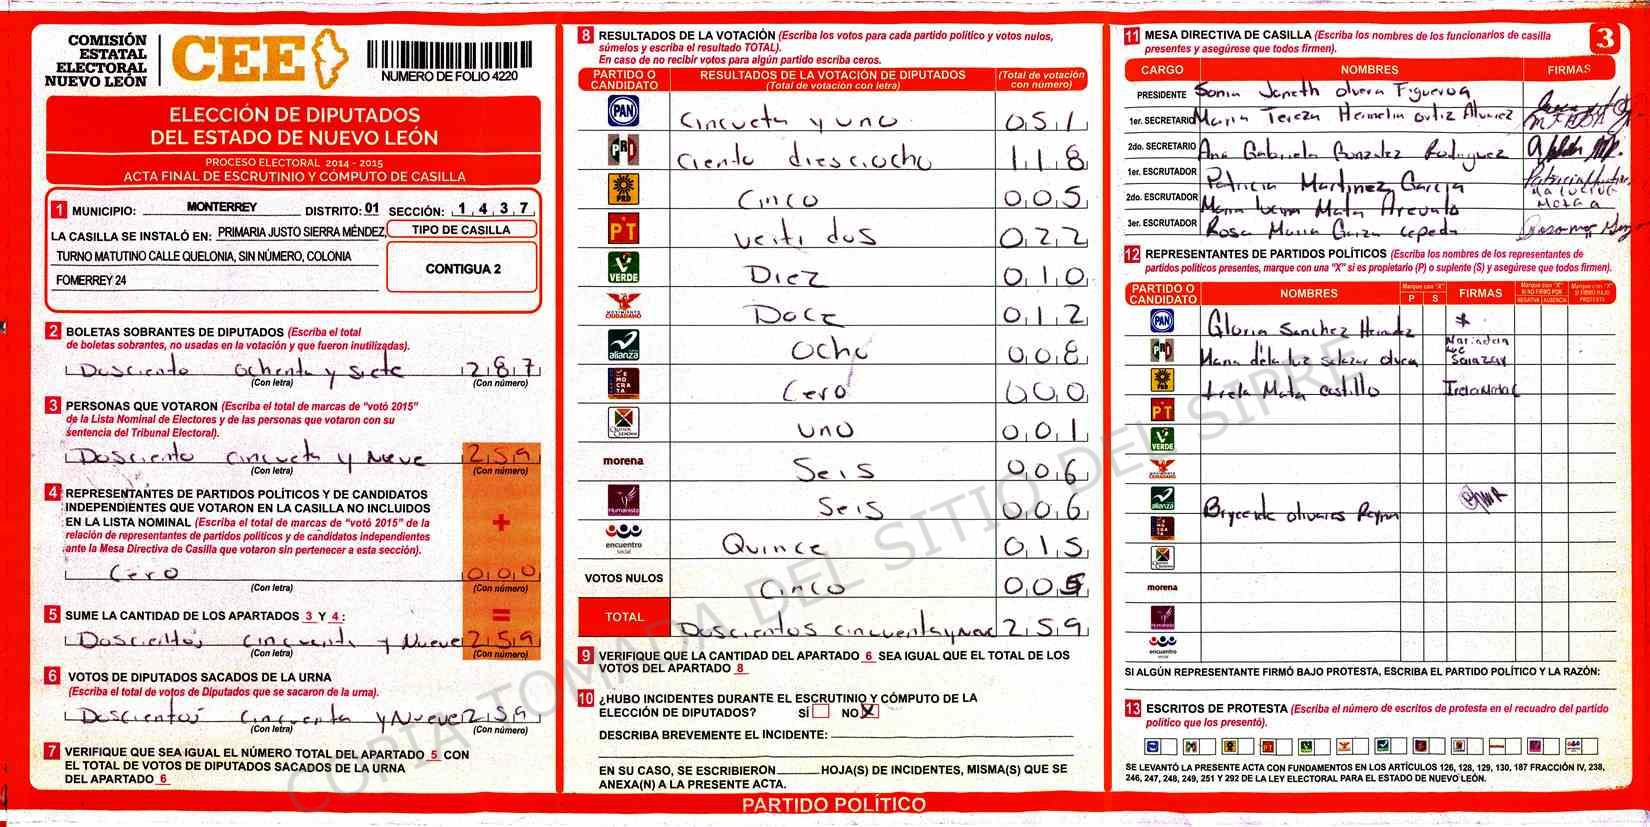 COMISIÓN
ESTATAL
ELECTORAL
NUEVO LEÓN
CEE
NUMERO DE FOLIO 4220
ELECCIÓN DE DIPUTADOS
DEL ESTADO DE NUEVO LEÓN
PROCESO ELECTORAL 2014 - 2015
ACTA FINAL DE ESCRUTINIO Y CÓMPUTO DE CASILLA
1 MUNICIPIO: MONTERREY DISTRITO: 01 SECCIÓN: 1 4 3 7
LA CASILLA SE INSTALÓ EN: PRIMARIA JUSTO SIERRA MÉNDEZ,
TURNO MATUTINO CALLE QUELONIA, SIN NÚMERO, COLONIA
FOMERREY 24
TIPO DE CASILLA
CONTIGUA 2
2 BOLETAS SOBRANTES DE DIPUTADOS (Escriba el total
de boletas sobrantes, no usadas en la votación y que fueron inutilizadas).
Dosciento ochenta y siete 2 8 7
(Con letra) (Con número)
3 PERSONAS QUE VOTARON (Escriba el total de marcas de "votó 2015"
de la Lista Nominal de Electores y de las personas que votaron con su
sentencia del Tribunal Electoral).
Dosciento cincueta y Nueve 2 5 9
(Con letra) (Con número)
4 REPRESENTANTES DE PARTIDOS POLÍTICOS Y DE CANDIDATOS
INDEPENDIENTES QUE VOTARON EN LA CASILLA NO INCLUIDOS
EN LA LISTA NOMINAL (Escriba el total de marcas de "votó 2015" de la
relación de representantes de partidos políticos y de candidatos independientes
ante la Mesa Directiva de Casilla que votaron sin pertenecer a esta sección).
+
Cero 0 0 0
(Con letra) (Con número)
=
5 SUME LA CANTIDAD DE LOS APARTADOS 3 Y 4:
Doscientos cincuenta y Nueve 2 5 9
(Con letra) (Con número)
6 VOTOS DE DIPUTADOS SACADOS DE LA URNA
(Escriba el total de votos de Diputados que se sacaron de la urna).
Doscientos cincuenta y Nueve 2 5 9
(Con letra) (Con número)
7 VERIFIQUE QUE SEA IGUAL EL NÚMERO TOTAL DEL APARTADO 5 CON
EL TOTAL DE VOTOS DE DIPUTADOS SACADOS DE LA URNA
DEL APARTADO 6
8 RESULTADOS DE LA VOTACIÓN (Escriba los votos para cada partido político y votos nulos,
súmelos y escriba el resultado TOTAL).
En caso de no recibir votos para algún partido escriba ceros.
PARTIDO O CANDIDATO RESULTADOS DE LA VOTACIÓN DE DIPUTADOS (Total de votación con letra) (Total de votación con número)
PAN Cincueta y uno 0 5 1
PRD Ciento diesciocho 1 1 8
PRD Cinco 0 0 5
PT Veiti dos 0 2 2
VERDE Diez 0 1 0
MOVIMIENTO CIUDADANO Doce 0 1 2
alianza Ocho 0 0 8
DEMOCRATA Cero 0 0 0
CRUZADA CIUDADANA Uno 0 0 1
morena Seis 0 0 6
Humanista Seis 0 0 6
encuentro social Quince 0 1 5
VOTOS NULOS Cinco 0 0 5
TOTAL Doscientos cincuenta y Nueve 2 5 9
9 VERIFIQUE QUE LA CANTIDAD DEL APARTADO 6 SEA IGUAL QUE EL TOTAL DE LOS
VOTOS DEL APARTADO 8
10 ¿HUBO INCIDENTES DURANTE EL ESCRUTINIO Y CÓMPUTO DE LA
ELECCIÓN DE DIPUTADOS? SÍ NO X
DESCRIBA BREVEMENTE EL INCIDENTE:
EN SU CASO, SE ESCRIBIERON HOJA(S) DE INCIDENTES, MISMA(S) QUE SE
ANEXA(N) A LA PRESENTE ACTA.
PARTIDO POLÍTICO
11 MESA DIRECTIVA DE CASILLA (Escriba los nombres de los funcionarios de casilla
presentes y asegúrese que todos firmen).
3
CARGO NOMBRES FIRMAS
PRESIDENTE Sonia Janeth olvera Figueroa
1er. SECRETARIO Maria Tereza Hermelin ortiz Alvarez
2do. SECRETARIO Ana Gabriela Gonzalez Rodriguez
1er. ESCRUTADOR Patricia Martinez Garcia
2do. ESCRUTADOR Maria lucina Mata Arevalo
3er. ESCRUTADOR Rosa Maria Garza cepeda
12 REPRESENTANTES DE PARTIDOS POLÍTICOS (Escriba los nombres de los representantes de
partidos políticos presentes, marque con una "X" si es propietario (P) o suplente (S) y asegúrese que todos firmen).
PARTIDO O CANDIDATO NOMBRES Marque con "X" P S FIRMAS Marque con "X" SI NO FIRMÓ POR NEGATIVA AUSENCIA Marque con "X" SI FIRMÓ BAJO PROTESTA
PAN Gloria Sanchez
PRD Maria dela luz salazar olvera
PRD Irela Mata castillo
PT
VERDE
alianza olivares Reyna
morena
Humanista
encuentro social
SI ALGÚN REPRESENTANTE FIRMÓ BAJO PROTESTA, ESCRIBA EL PARTIDO POLÍTICO Y LA RAZÓN:
13 ESCRITOS DE PROTESTA (Escriba el número de escritos de protesta en el recuadro del partido
político que los presentó).
SE LEVANTÓ LA PRESENTE ACTA CON FUNDAMENTOS EN LOS ARTÍCULOS 126, 128, 129, 130, 187 FRACCIÓN IV, 238,
246, 247, 248, 249, 251 Y 292 DE LA LEY ELECTORAL PARA EL ESTADO DE NUEVO LEÓN.
COPIA TOMADA DEL SITIO DEL SIPRE